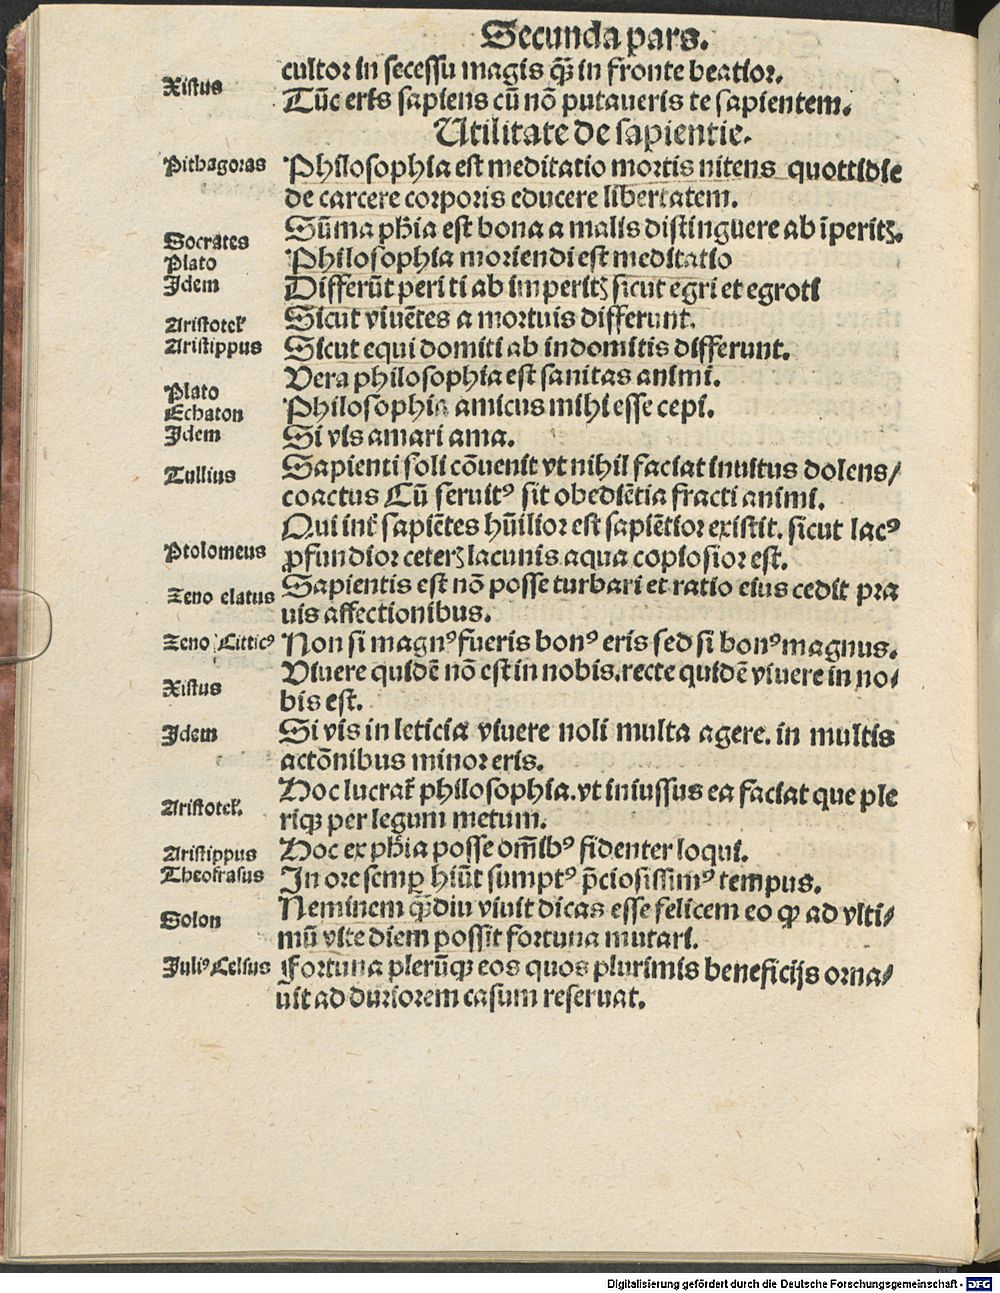 Secunda pars.
cultor in secessu magis q̃ȝ in fronte beatior.
Xistus Tūc eris sapiens cū nō putaueris te sapientem.
Utilitate de sapientie.
Pithagoras Philosophia est meditatio mortis nitens quottidie
de carcere corporis educere libertatem.
Socrates Sūma ph̄ia est bona a malis distinguere ab īperitꝫ.
Plato Philosophia moriendi est meditatio
Idem Differūt periti ab imperitꝫ sicut egri et egroti
Aristotel̓ Sicut viuētes a mortuis differunt.
Aristippus Sicut equi domiti ab indomitis differunt.
Plato Vera philosophia est sanitas animi.
Echaton Philosophia amicus mihi esse cepi.
Idem Si vis amari ama.
Tullius Sapienti soli cōuenit vt nihil faciat inuitus dolens/
coactus Cū seruitꝰ sit obediētia fracti animi.
Qui int̓ sapiētes hūilior est sapiētior existit. sicut lacꝰ
Ptolomeus ꝓfundior ceterꝫ lacunis aqua copiosior est.
Zeno elatus Sapientis est nō posse turbari et ratio eius cedit pra
uis affectionibus.
Zeno Citticꝰ Non si magnꝰ fueris bonꝰ eris sed si bonꝰ magnus.
Xistus Viuere quidē nō est in nobis. recte quidē viuere in no/
bis est.
Idem Si vis in leticia viuere noli multa agere. in multis
actōnibus minor eris.
Aristotel̓. Hoc lucrat̓ philosophia. vt iniussus ea faciat que ple
riqꝫ per legum metum.
Aristippus Hoc ex ph̄ia posse om̄ibꝰ fidenter loqui.
Theofrasus In ore semꝑ hiūt sumptꝰ p̄ciosissimꝰ tempus.
Solon Neminem q̃ȝdiu viuit dicas esse felicem eo ꝙ ad vlti/
mū vite diem possit fortuna mutari.
Juliꝰ Celsus Fortuna plerūqꝫ eos quos plurimis beneficijs orna/
uit ad duriorem casum reseruat.
Digitalisierung gefördert durch die Deutsche Forschungsgemeinschaft - DFG